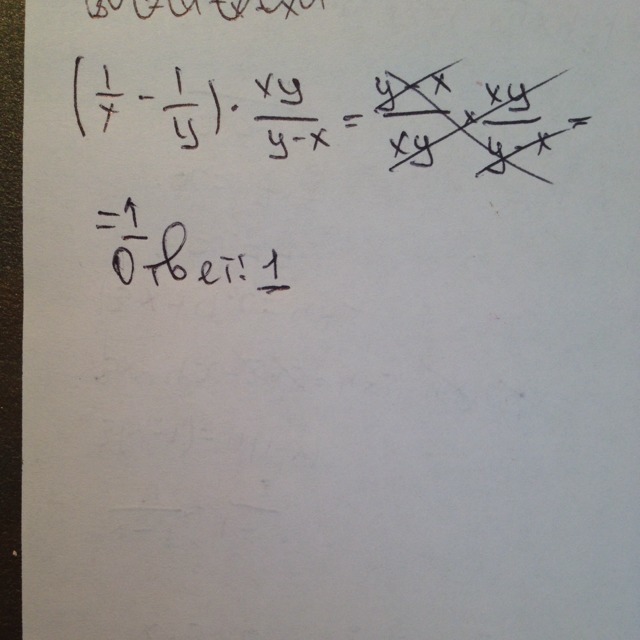 (1/x - 1/y) · xy/(y-x) = (y-x)/xy · xy/(y-x) =
= 1
Ответ: 1